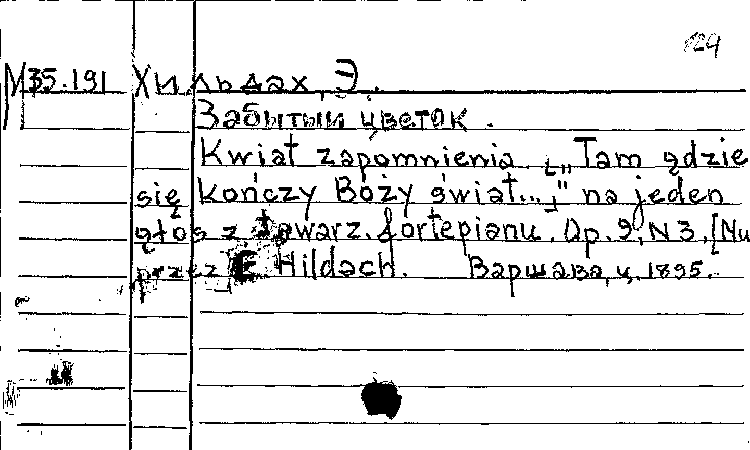 124
М35.191 Хильдах, Э.
Забытый цветок.
Kwiat zapomnienia. [„Tam gdzie
się kończy Boży świat..."] na jeden
głos z towarz. fortepianu. Op. 9, N 3, [Nu
przez E Hildach. Варшава, ц. 1895.